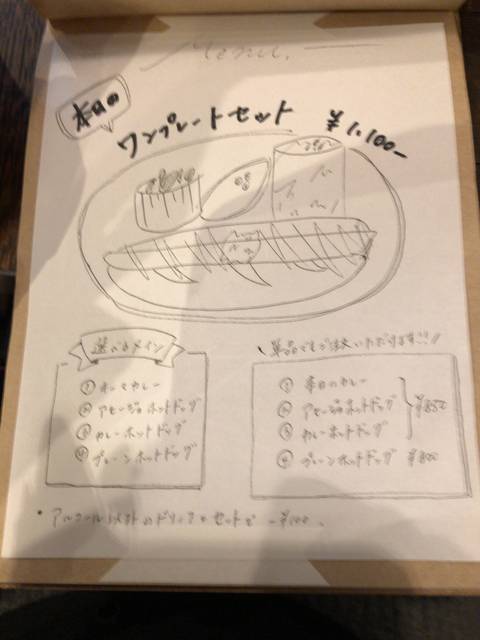 Menu.
本日の
ワンプレートセット ¥1,100-
選べるメイン
① キーマカレー
② アヒージョホットドッグ
③ カレーホットドッグ
④ プレーンホットドッグ
単品でもご注文いただけます!!
① 本日のカレー
② アヒージョホットドッグ
③ カレーホットドッグ
¥850
④ プレーンホットドッグ ¥800
・アルコール以外のドリンクとセットで -¥100.